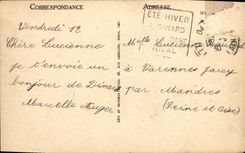 CORRESPONDANCE
ADRESSE
ÉTÉ-HIVER
DINARD
IDÉAL
Vendredi 12
Chère Lucienne
je t'envoie un
bonjour de Dinard
Marcelle Auger
Melle Lucienne
à Varennes Jarcy
par Mandres
(Seine et Oise)